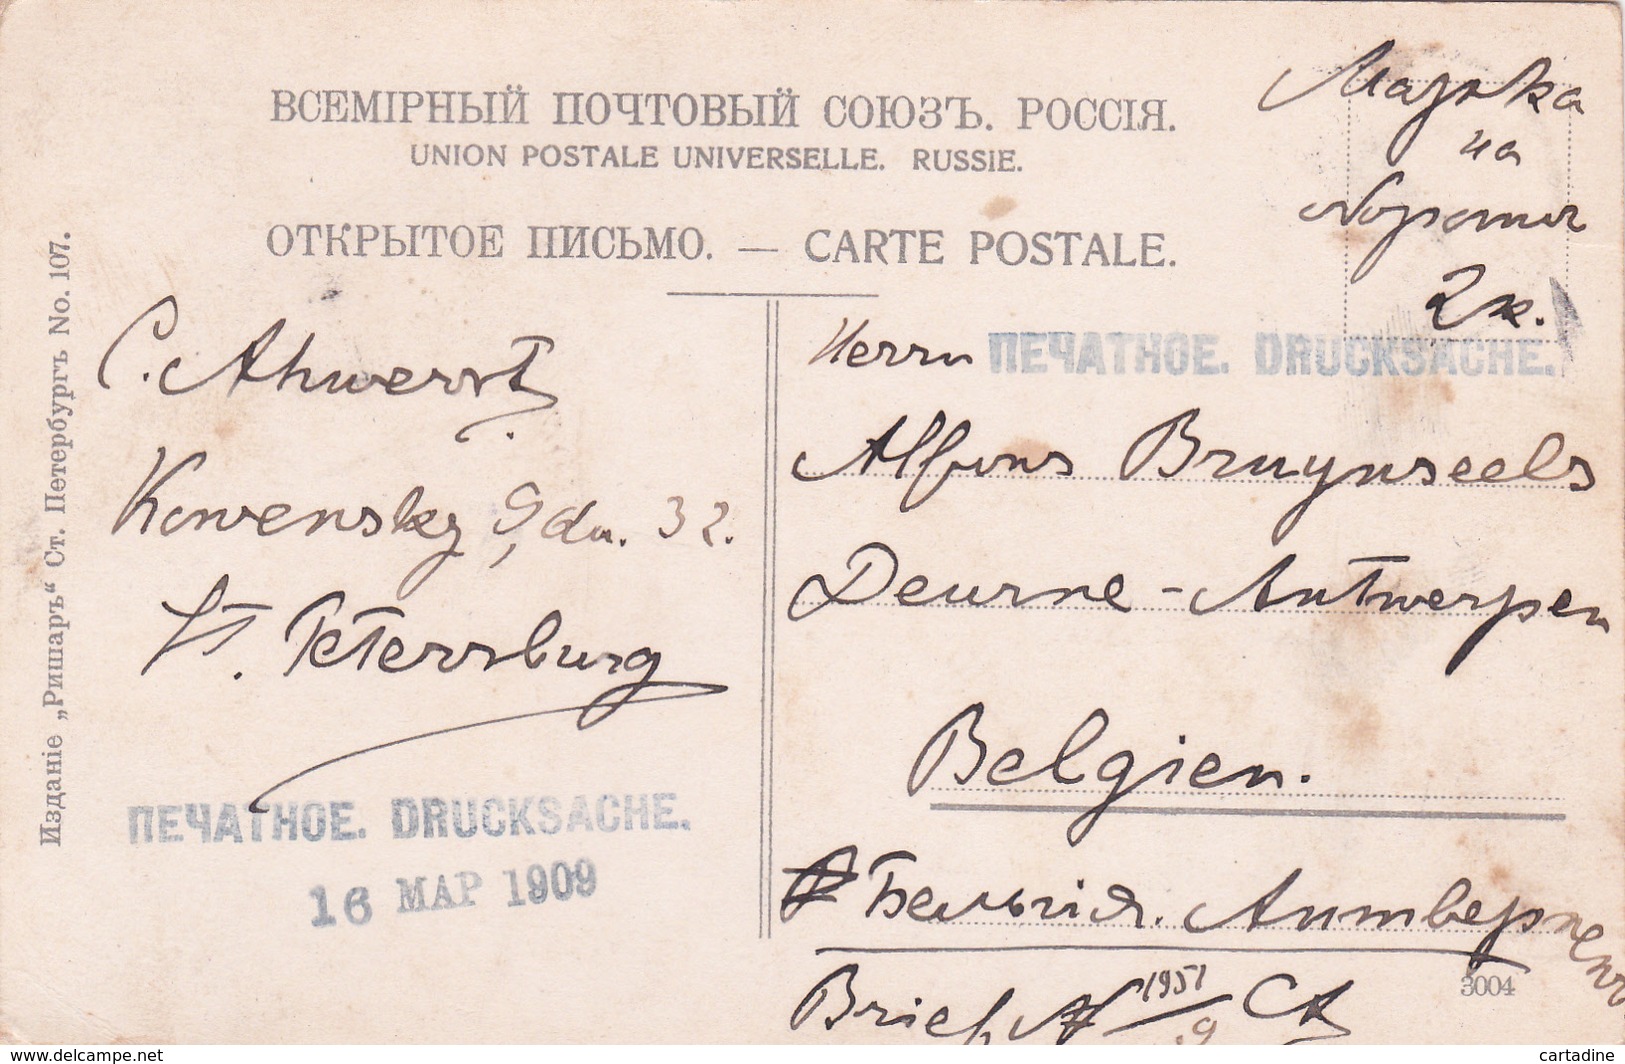 ВСЕМІРНЫЙ ПОЧТОВЫЙ СОЮЗЪ. РОССІЯ.
UNION POSTALE UNIVERSELLE. RUSSIE.
ОТКРЫТОЕ ПИСЬМО. — CARTE POSTALE.
Марка
на
обороте
2 к.
Изданіе „Ришаръ“ Ст. Петербургъ No. 107.
C. Ahwerst
Kowensky 9, 32.
St. Petersburg
ПЕЧАТНОЕ. DRUCKSACHE.
16 МАР 1909
Herrn
ПЕЧАТНОЕ. DRUCKSACHE.
Alfons Bruynseels
Deurne - Antwerpen
Belgien.
Бельгія. Антверпенъ
3004
Brief N 1951/9 CA
cartadine
www.delcampe.net